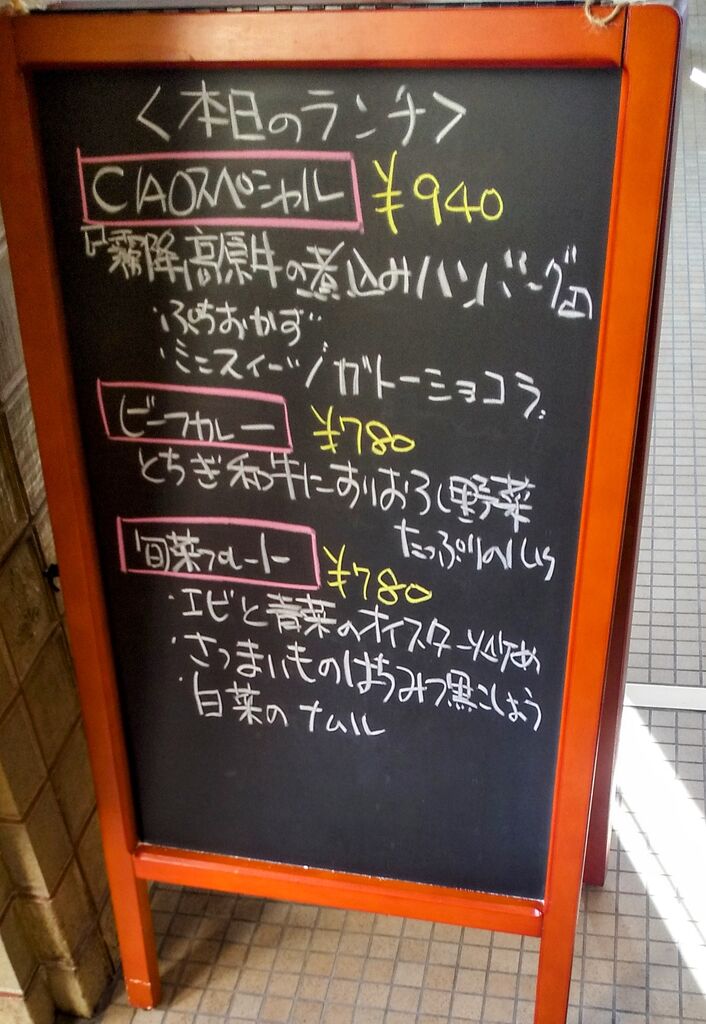 ＜本日のランチ＞
CIAOスペシャル ￥940
『霧降高原牛の煮込みハンバーグ』
・ぷちおかず
・ミニスイーツ/ガトーショコラ
ビーフカレー ￥780
とちぎ和牛にすりおろし野菜
たっぷりのルゥ
旬菜プレート ￥780
・エビと青菜のオイスター炒め
・さつまいものはちみつ黒こしょう
・白菜のナムル